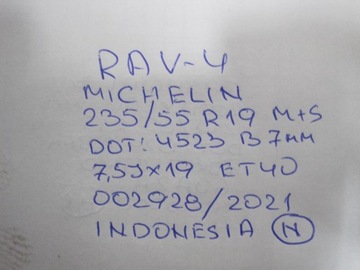 RAV-4
MICHELIN
235/55 R19 M+S
DOT: 4523 B 7мм
7,5J×19 ET40
002928/2021
INDONESIA N